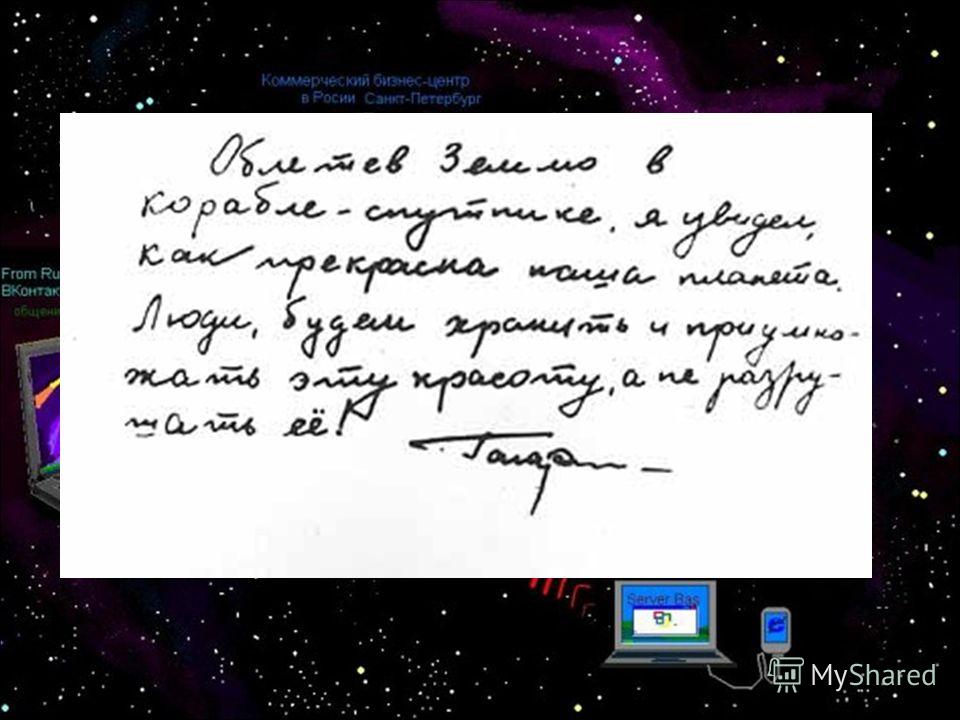 Коммерческий бизнес-центр
в Росии Санкт-Петербург
Облетев Землю в
корабле-спутнике, я увидел,
как прекрасна наша планета.
Люди, будем хранить и приумно-
жать эту красоту, а не разру-
шать её!
Гагарин
From Ru
ВКонтак
общени
Server Bas
MyShared